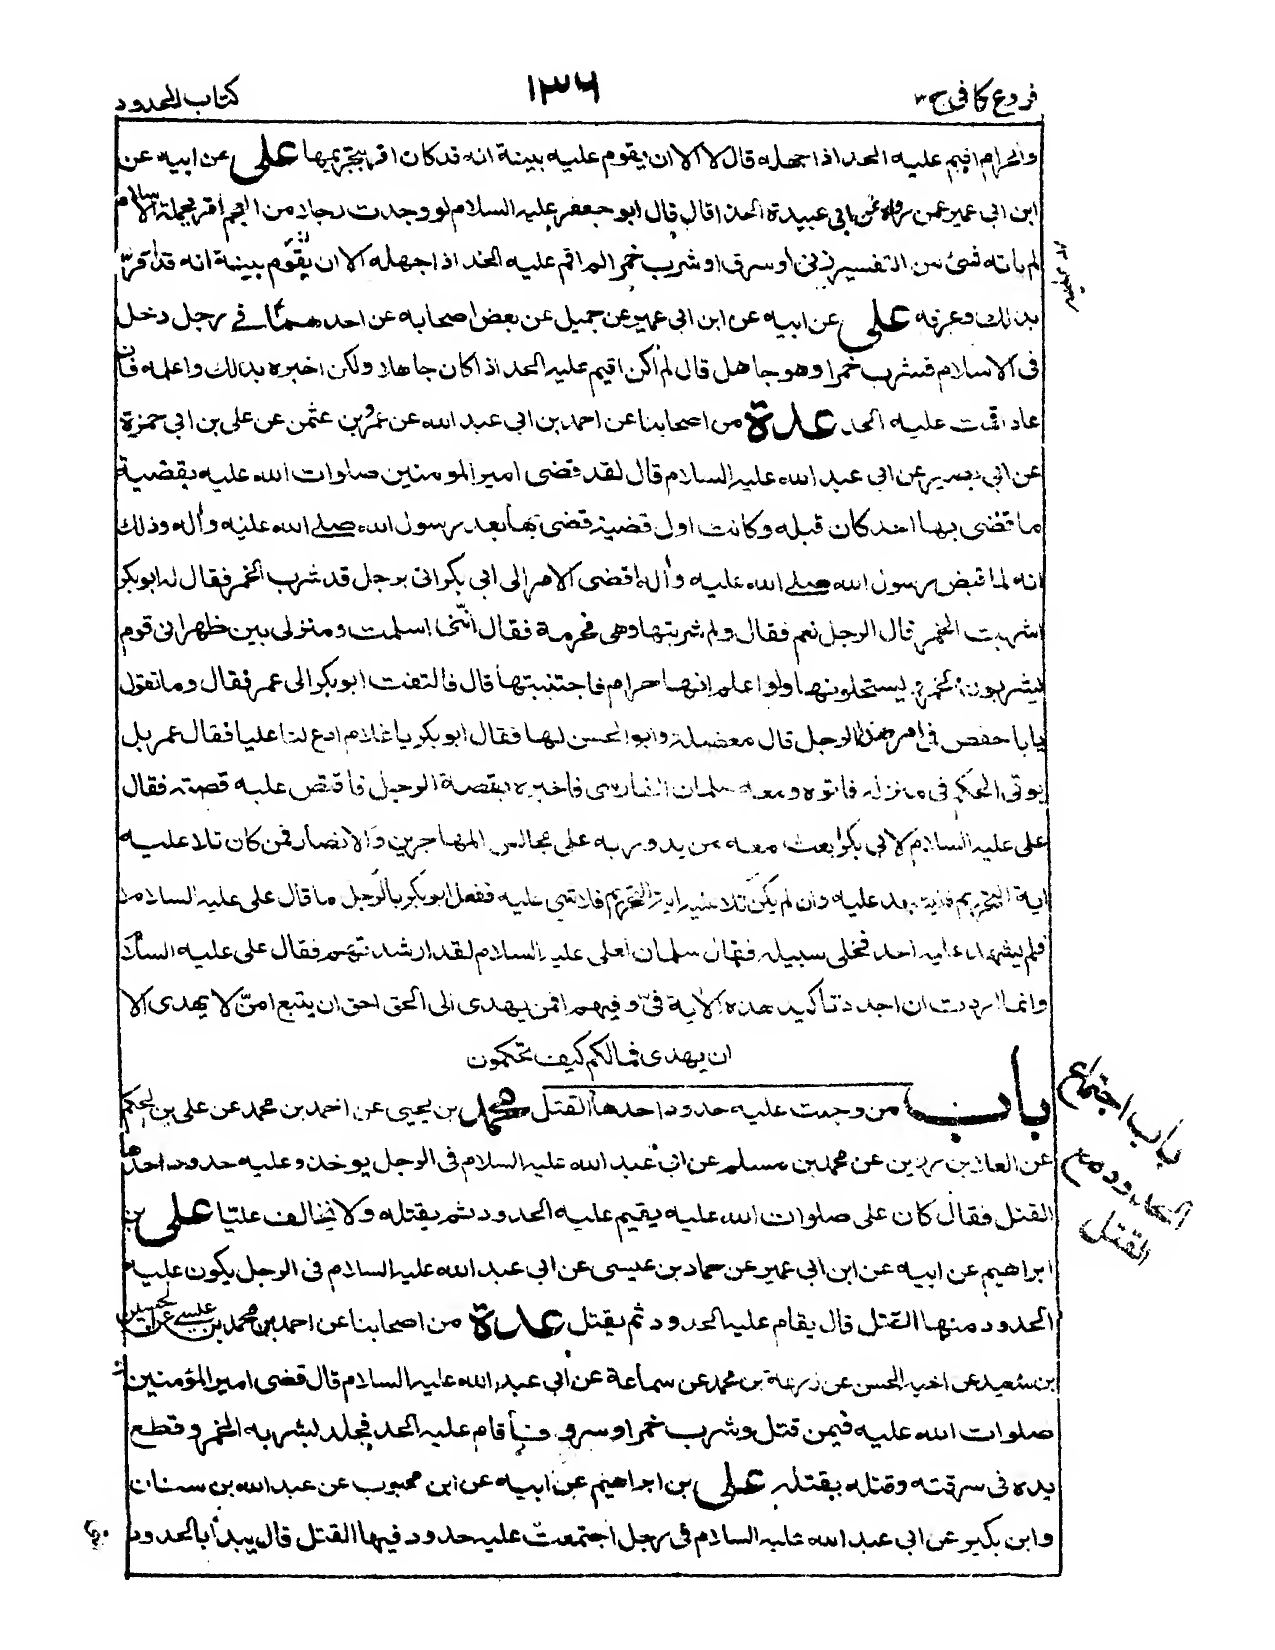 فروع کافی ج٣
١٣٦
کتاب الحدود
والحرام اقیم علیه الحد اذا جهله قال لا الا ان یقوم علیه بینة انه قد کان اقر بتحریمها علی عن ابیه عن
ابن ابی عمیر عمن رواه عن ابی عبیدة الحذا قال قال ابو جعفر علیه السلام لو وجدت رجلا من العجم اقر بجملة الاسلام
لم یاته شئ من التفسیر زنی او سرق او شرب خمرا لم اقم علیه الحد اذ اجهله الا ان یقوم بینة انه قد اقرّ
بذلك وعرفه علی عن ابیه عن ابن ابی عمیر عن جمیل عن بعض اصحابه عن احدهما فی رجل دخل
فی الاسلام فشرب خمرا وهو جاهل قال لم اکن اقیم علیه الحد اذ اکان جاهلا ولکن اخبره بذالك واعلمه فان
عاد اقمت علیه الحد عدة من اصحابنا عن احمد بن ابی عبد الله عن عمرو بن عثمن عن علی بن ابی حمزة
عن ابی بصیر عن ابی عبد الله علیه السلام قال لقد قضی امیر المومنین صلوات الله علیه بقضیة
ما قضی بها احد کان قبله وکانت اول قضیة قضی بها بعد رسول الله صلی الله علیه وآله وذلك
انه لما قبض رسول الله صلی الله علیه وآله افضی الامر الی ابی بکر اتی برجل قد شرب الخمر فقال له ابو بکر
اشربت الخمر قال الرجل نعم فقال ولم شربتها وهی محرمة فقال اننی اسلمت ومنزلی بین ظهرانی قوم
یشربون الخمر ویستحلونها ولو اعلم انها حرام فاجتنبتها قال فالتفت ابو بکر الی عمر فقال وما تقول
یابا حفص فی امر هذا الرجل قال معضلة وابو الحسن لها فقال ابو بکر یا غلام ادع لنا علیا فقال عمر بل
یوتی الحکم فی منزله فاتوه ومعه سلمان الفارسی فاخبره بقصة الرجل فاقتص علیه قصته فقال
علی علیه السلام لابی بکر ابعث معه من یدور به علی مجالس المهاجرین والانصار فمن کان تلا علیه
ایة التحریم فلیشهد علیه وان لم یکن تلا علیه ایة التحریم فلا شئ علیه ففعل ابو بکر بالرجل ما قال علی علیه السلام
فلم یشهد علیه احد فخلی سبیله فقال سلمان لعلی علیه السلام لقد ارشدتهم فقال علی علیه السلام
وانما اردت ان اجدد تاکید هذه الآیة فیّ وفیهم افمن یهدی الی الحق احق ان یتبع امنّ لا یهدی الا
ان یهدی فمالکم کیف تحکمون
باب من وجبت علیه حدود احدها القتل محمد بن یحیی عن احمد بن محمد عن علی بن الحکم
عن العلا بن رزین عن محمد بن مسلم عن ابی عبد الله علیه السلام فی الرجل یوخذ وعلیه حدود احدها
القتل فقال کان علی صلوات الله علیه یقیم علیه الحدود ثم یقتله ولا یخالف علیّا علی بن
ابراهیم عن ابیه عن ابن ابی عمیر عن حماد بن عیسی عن ابی عبد الله علیه السلام فی الرجل یکون علیه
الحدود منها القتل قال یقام علیه الحدود ثم یقتل عدة من اصحابنا عن احمد بن محمد بن عیسی عن الحسین
بن سعید عن اخیه الحسن عن زرعة بن محمد عن سماعة عن ابی عبد الله علیه السلام قال قضی امیر المؤمنین
صلوات الله علیه فیمن قتل وشرب خمرا وسرق فأقام علیه الحد فجلد لشربه الخمر وقطع
یده فی سرقته وقتله بقتله علی بن ابراهیم عن ابیه عن ابن محبوب عن عبد الله بن سنان
وابن بکیر عن ابی عبد الله علیه السلام فی رجل اجتمعت علیه حدود فیها القتل قال یبدأ بالحدود
باب اجتماع
الحدود مع
القتل